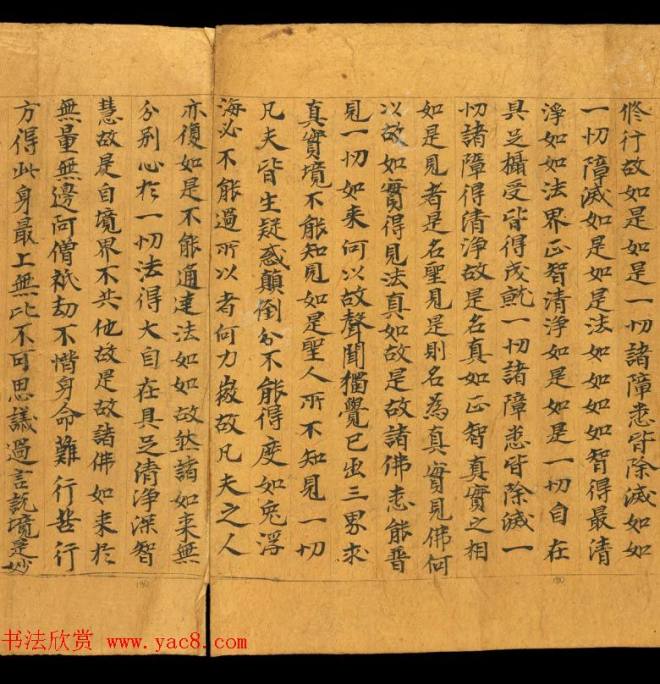 修行故如是如是一切諸障悉皆除滅如如
一切障滅如是如是法如如如如智得最清
淨如如法界正智清淨如是如是一切自在
具足攝受皆得成就一切諸障悉皆除滅一
切諸障得清淨故是名真如正智真實之相
如是見者是名聖見是則名為真實見佛何
以故如實得見法真如故是故諸佛悉能普
見一切如來何以故聲聞獨覺已出三界求
真實境不能知見如是聖人所不知見一切
凡夫皆生疑惑顛倒分不能得度如兔浮
海必不能過所以者何力微故凡夫之人
亦復如是不能通達法如如故然諸如來無
分別心於一切法得大自在具足清淨深智
慧故是自境界不共他故是故諸佛如來於
無量無邊阿僧祇劫不惜身命難行苦行
方得此身最上無比不可思議過言說境是妙
书法欣赏 www.yac8.com